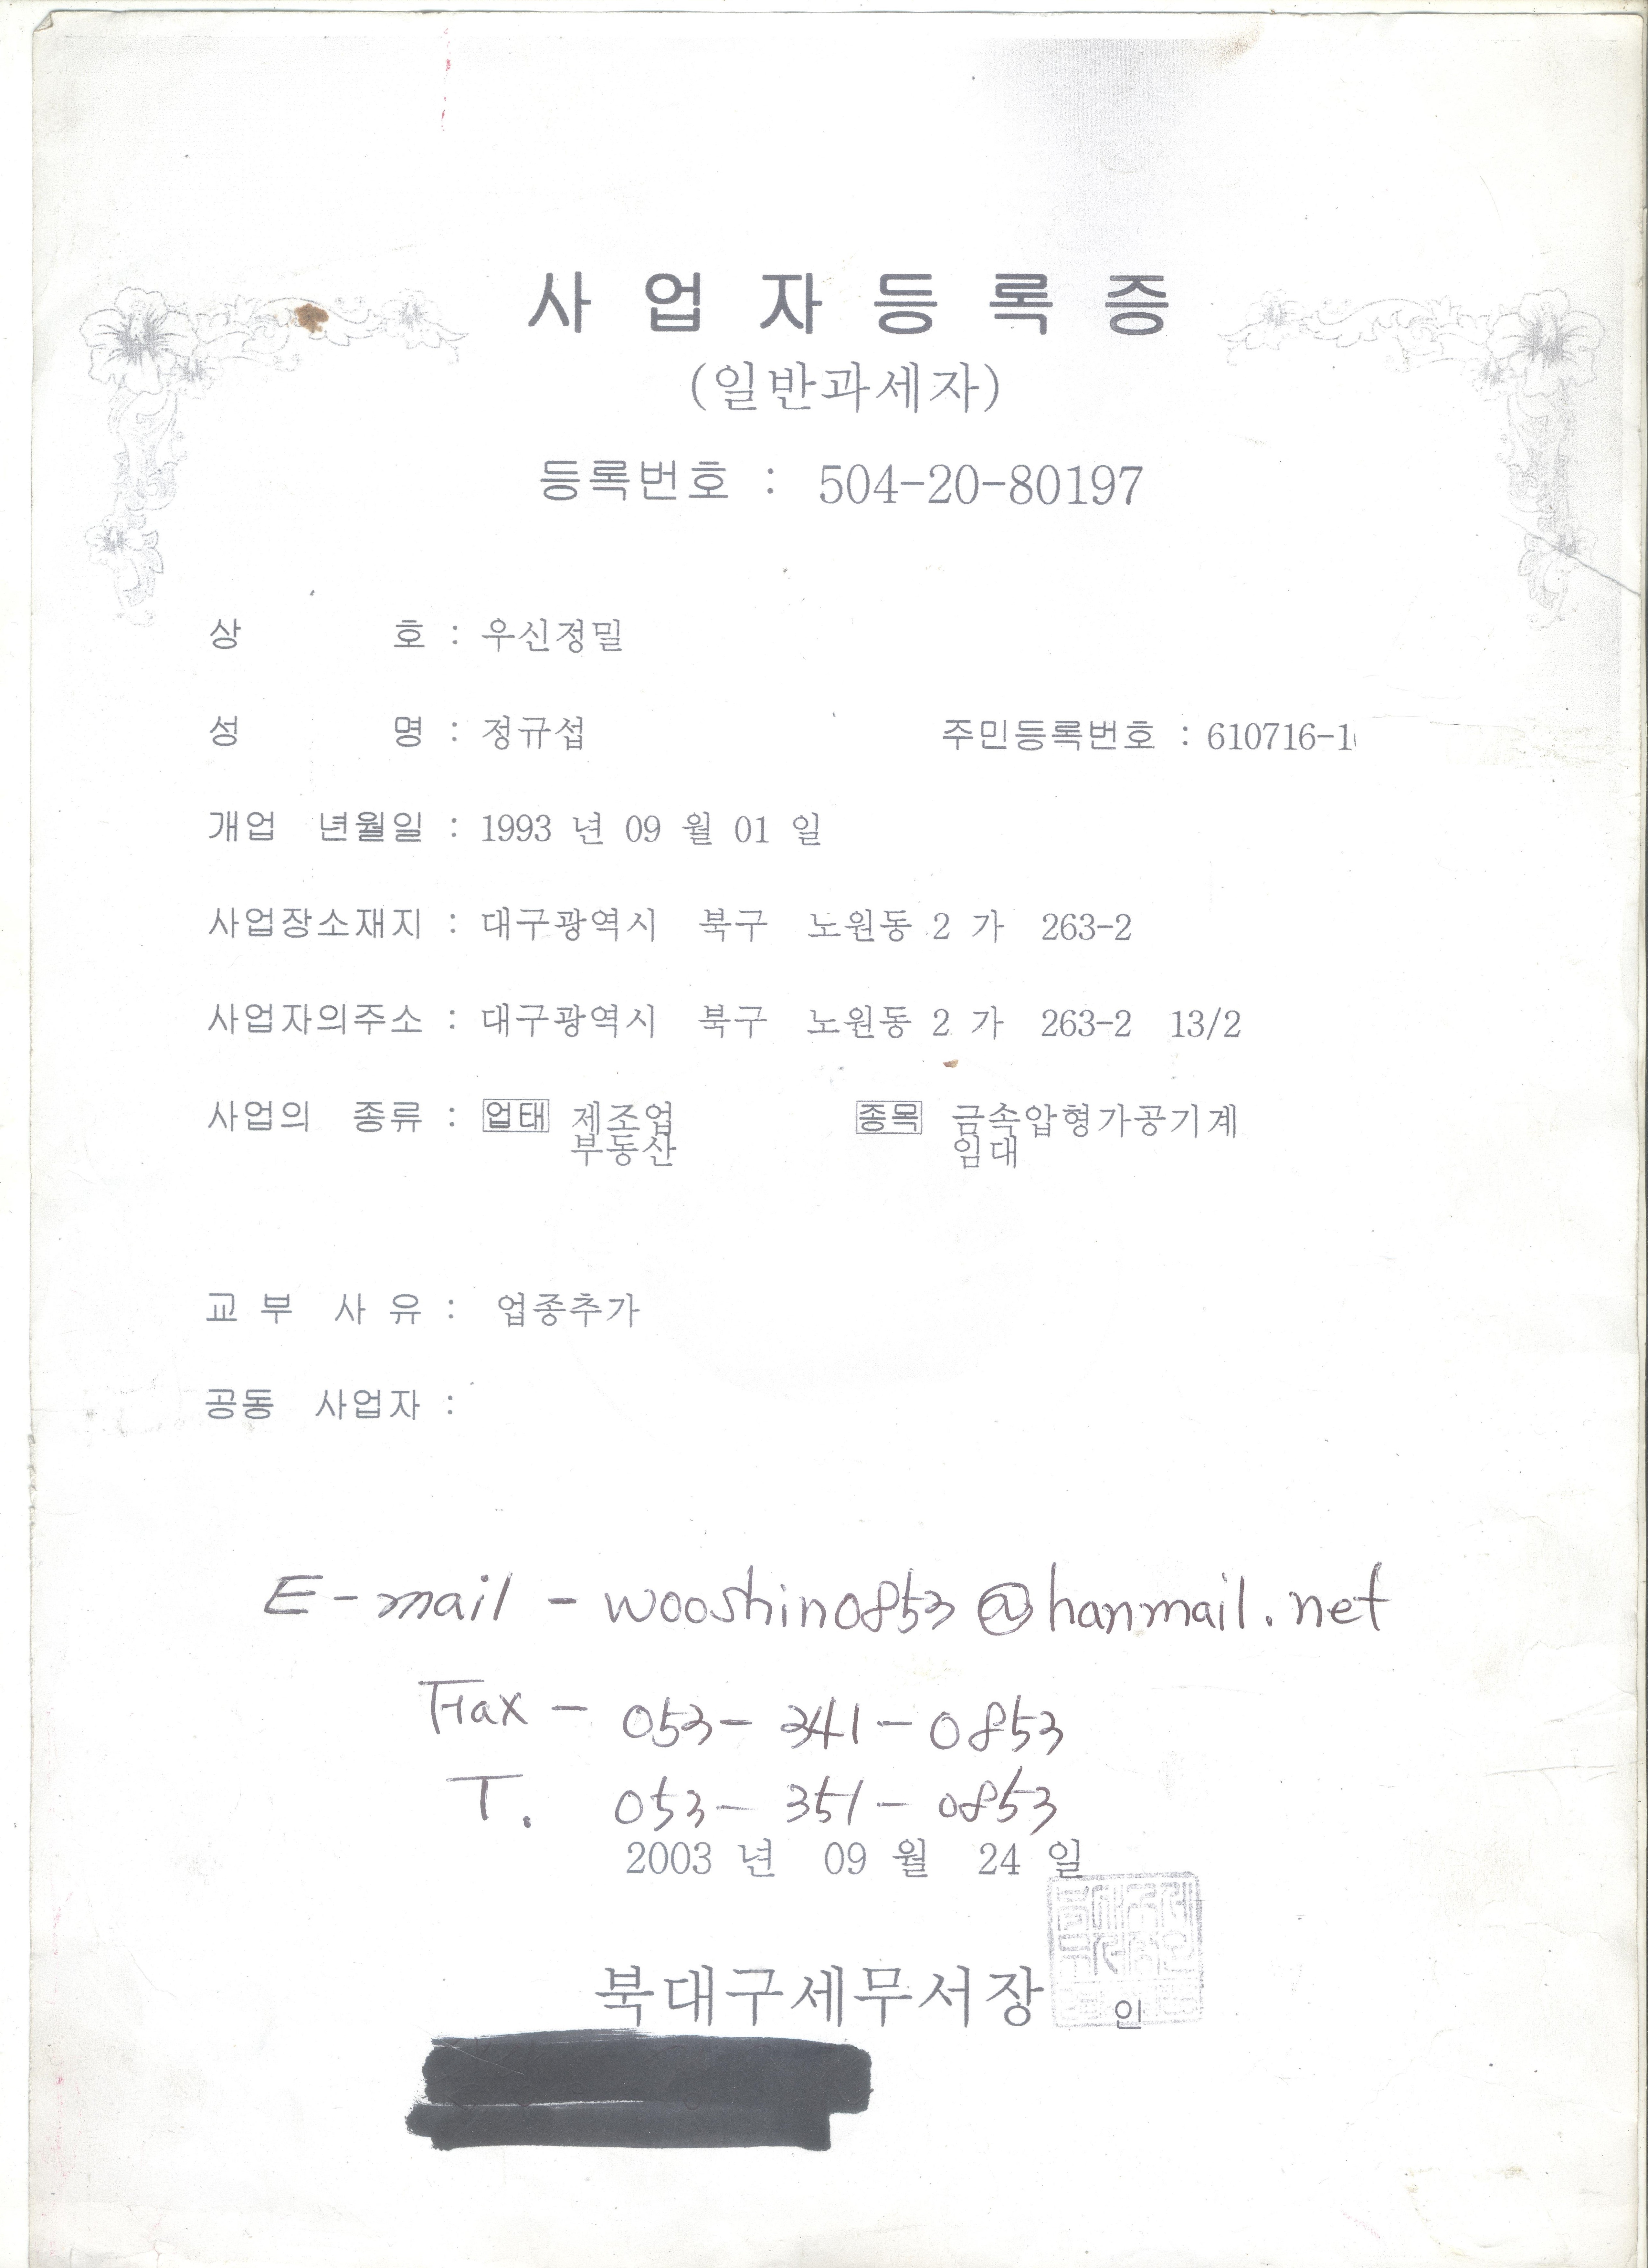 사업자등록증
(일반과세자)
등록번호 : 504-20-80197
상 호 : 우신정밀
성 명 : 정규섭 주민등록번호 : 610716-1
개업 년월일 : 1993 년 09 월 01 일
사업장소재지 : 대구광역시 북구 노원동 2 가 263-2
사업자의주소 : 대구광역시 북구 노원동 2 가 263-2 13/2
사업의 종류 : 업태 제조업 종목 금속압형가공기계
부동산 임대
교 부 사 유 : 업종추가
공동 사업자 :
E-mail - wooshin0853@hanmail.net
Fax - 053- 341- 0853
T. 053- 351- 0853
2003 년 09 월 24 일
북대구세무서장 인